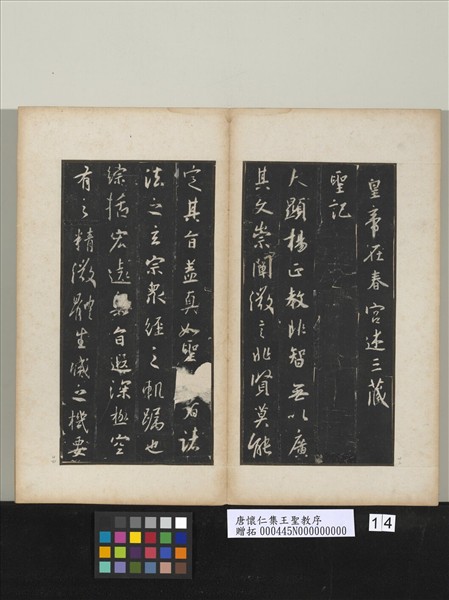 皇帝在春宮述三藏
聖記
夫顯揚正教非智無以廣
其文崇闡微言非賢莫能
定其旨蓋真如聖者諸
法之玄宗眾經之軌躅也
綜括宏遠奧旨遐深極空
有之精微體生滅之機要
唐懷仁集王聖教序
贈拓 000445N000000000
14